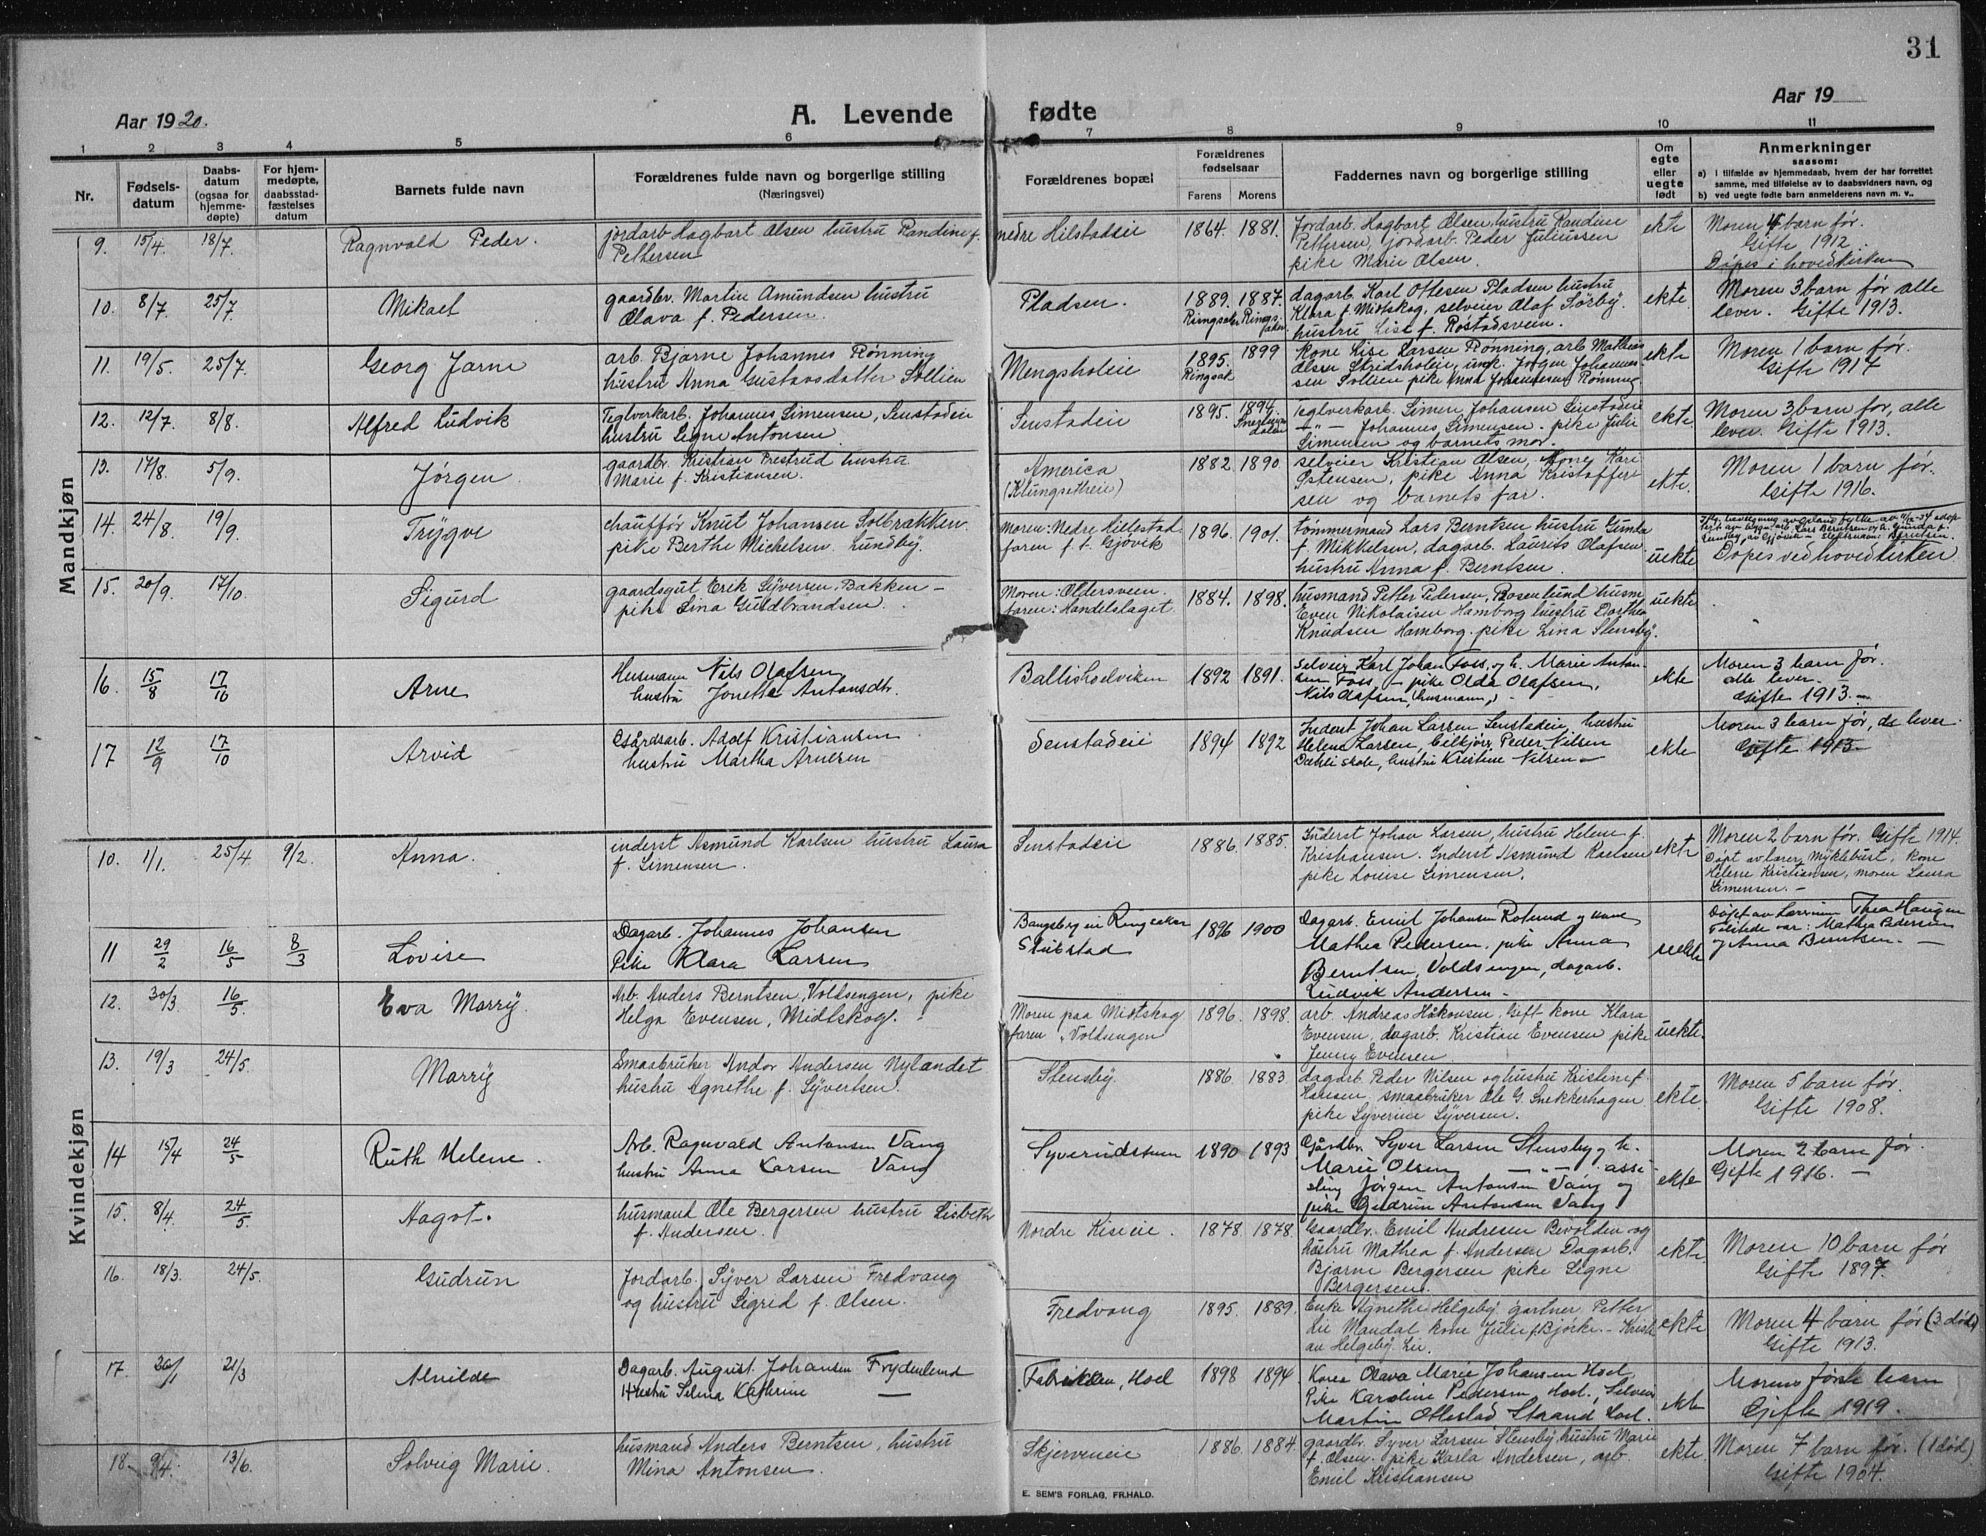 31
Aar 1920.
A. Levende fødte
Aar 19
1 2 3 4 5 6 7 8 9 10 11
Nr.
Fødsels-
datum
Daabs-
datum
(ogsaa for
hjemme-
døpte)
For hjem-
medøpte,
daabsstad-
fæstelses
datum
Barnets fulde navn
Forældrenes fulde navn og borgerlige stilling
(Næringsvei)
Forældrenes bopæl
Forældrenes
fødselsaar
Farens Morens
Faddernes navn og borgerlige stilling
Om
egte
eller
uegte
født
Anmerkninger
saasom:
a) i tilfælde av hjemmedaab, hvem der har forrettet
samme, med tilføielse av to daabsvidners navn, og
b) ved uegte fødte barn anmelderens navn m. v.,
Mandkjøn
9. 15/4. 18/7. Ragnvald Peder.
jordarb Hagbart Olsen hustru Randine f.
Pettersen
nedre Hilstadeie
1864. 1881.
Jordarb. Hagbart Olsen, hustru Randine
Pettersen, jordarb. Peder Juliussen
pike Marie Olsen.
ekte
Moren 4 barn før.
Gifte 1912.
Døpes i hovedkirken
10. 8/7. 25/7 Mikael
gaardbr. Martin Amundsen hustru
Olava f. Pedersen.
Pladsen.
1889. 1887.
Ringsaker
dagarb. Karl Ottesen Pladsen hustru
Klara f. Midtskog, selveier Olaf Sørby.
hustru Lise f. Rostadsveen.
ekte.
Moren 3 barn før alle
lever. Gifte 1913.
11. 19/5. 25/7 Georg Jarne
arb. Bjarne Johannes Rønning
hustru Anna Gustavsdatter Sollien
Mengsholeie
1895. 1899
Ringsak
kone Lise Larsen Rønning, arb Mathias
Olsen Stridsholeie, unk. Jørgen Johannes-
sen Sollien pike Anna Johannesen Rønning
ekte
Moren 1 barn før.
Gifte 1917
12. 12/7. 8/8. Alfred Ludvik
Teglverkarb. Johannes Simensen, Senstadeie
hustru Signe Antonsen.
Senstadeie
1895. 1894.
Teglverkarb. Simen Johansen Senstadeie
-"- Johannes Simensen. pike Juli
Simensen og barnets mor.
ekte
Moren 3 barn før, alle
lever. Gifte 1913.
13. 17/8. 5/9. Jørgen
gaardbr. Kristian Prestrud hustru
Marie f. Kristiansen.
America
(Klungsetheie)
1882 1890
selveier Kristian Olsen, kone Kari
Østensen, pike Anna Kristoffer-
sen og barnets far.
ekte.
Moren 1 barn før.
Gifte 1916.
14. 24/8. 19/9. Trygve
chauffør Knut Johansen Solbrækken
pike Berthe Michelsen. Lundby.
Moren: Nedre Lillestad
faren f. t. Gjøvik
1896. 1901.
tømmermand Lars Berntsen hustru Gunda
f. Mikkelsen, dagarb. Laurits Olafsen
hustru Anna f. Berntsen.
uekte
Døpes ved hovedkirken
15. 20/9. 17/10. Sigurd
gaardsgut Erik Syversen Bakken –
pike Lina Guldbrandsen.
Moren: Oldersveen.
faren: Handelslaget.
1884. 1898.
husmand Petter Pedersen, Rosenlund husm
Even Nikolaisen Hamborg hustru Dorthea
Knudsen Hamborg. pike Lina Stensby.
uekte
16. 15/8 17/10 Arne
Husmann Nils Olafsen
hustru Jonetta Antonsdtr.
Ballisholviken
1892 1891.
Selveier Karl Johan Foss, og h. Marie Anton-
sen Foss, – pike Olda Olafsen,
Nils Olafsen, (husmann) –
ekte
Moren 3 barn før.
alle lever. –
Gifte 1913. –
17 12/9 17/10 Arvid
Gårdsarb. Adolf Kristiansen
hustru Martha Arnesen
Senstadeie
1894 1892
Inderst Johan Larsen, Senstadeie, hustru
Helene Larsen, Peder Nilsen
Dæhli skole, hustru Kristine Nilsen –
ekte
Moren 3 barn før, de lever
Gifte 1913 –
Kvindekjøn
10. 1/1. 25/4 9/2. Anna.
inderst Asmund Karlsen hustru Laura
f. Simensen.
Senstadeie
1886. 1885.
Inderst Johan Larsen, hustru Helene f.
Kristiansen. Inderst Asmund Karlsen
pike Louise Simensen.
ekte
Moren 2 barn før. Gifte 1914.
Døpt av lærer Myklebust, kone
Helene Kristiansen, moren Laura
Simensen. –
11 29/2 16/5 8/3 Lovise
Dagarb. Johannes Johansen
Pike Klara Larsen
Bangsberg in Ringsaker
Stubstad
1896 1900
Dagarb. Emil Johansen Rolund og kone
Mathea Pedersen, pike Anna
Berntsen, Voldsengen, dagarb.
Ludvik Andersen –
uekte
Døpt av Thea Haugen
Tilstede var: Mathea Pedersen
og Anna Berntsen. –
12. 30/3 16/5. Eva Marry.
Arb. Anders Berntsen, Voldsengen, pike
Helga Evensen, Midtskog.
Moren paa Midtskog
faren " Voldsengen
1896. 1898.
arb. Andreas Håkonsen, Gift kone Klara
Evensen, dagarb. Kristian Evensen pike
Jenny Evensen
uekte.
13. 19/3 24/5. Marry
Smaabruker Andor Andersen Nylandet
hustru Agnethe f. Syvertsen.
Stensby.
1886. 1883.
dagarb. Peder Nilsen og hustru Kristine f.
Hansen, smaabruker Ole G. Snekkerhagen
pike Syverine Syversen.
ekte.
Moren 5 barn før.
Gifte 1908.
14 15/4 24/5 Ruth Helene.
Arb. Ragnvald Antonsen Vang
hustru Anna Larsen Vang
Syverudstuen
1890 1893
Gårdbr. Syver Larsen Stensby og h.
Marie Olsen – " – , assi-
sting Jørgen Antonsen Vang og
pike Gudrun Antonsen Vang
ekte
Moren 2 barn før.
Gifte 1916. –
15. 8/4. 24/5. Aagot.
husmand Ole Bergersen hustru Lisbeth
f. Andersen.
Nordre Kiseie.
1878. 1878.
Gaardbr. Emil Andresen Bevolden og
hustru Mathea f. Andersen Dagarb.
Bjarne Bergersen pike Signe
Bergersen.
ekte
Moren 10 barn før
Gifte 1897.
16. 18/3. 24/5. Gudrun
Jordarb. Syver Larsen Fredvang
og hustru Sigrid f. Olsen.
Fredvang
1895. 1889.
Enke Agnethe Helgeby gartner Petter
Lie Mandal kone Julie f. Bjørke –
an Helgeby Lie.
ekte
Moren 4 barn før (3 død)
Gifte 1913.
17 20/1 21/3 Alvilde
Dagarb. August Johansen Frydenlund
Hustru Selma Kathrine —
Fabrikken, Hoel
1898 1894
Kone Olava Marie Johansen Hoel
Pike Karoline Pedersen Hoel, Selveier
Martin Ottestad Strand, Hoel.
ekte
Morens første barn
Gifte 1919.
18. 9/4. 13/6. Solveig Marie.
husmand Anders Berntsen, hustru
Mina Antonsen.
Skjerveneie
1886. 1884.
gaardbr. Syver Larsen Stensby, hustru Marie
f. Olsen. pike Karla Andersen, arb
Emil Kristiansen
ekte
Moren 7 barn før. (1 død)
Gifte 1904.
E. SEM'S FORLAG, FR.HALD.